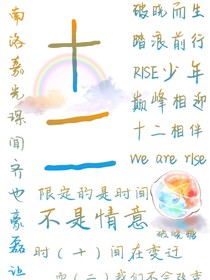 南洛嘉光琛闻齐也豪磊让
十二
破晓而生
踏浪前行
RISE少年
巅峰相迎
十二相伴
we are rise
限定的是时间
不是情意
破晓糖
时(十)间在变迁
而(二)我们不会改变